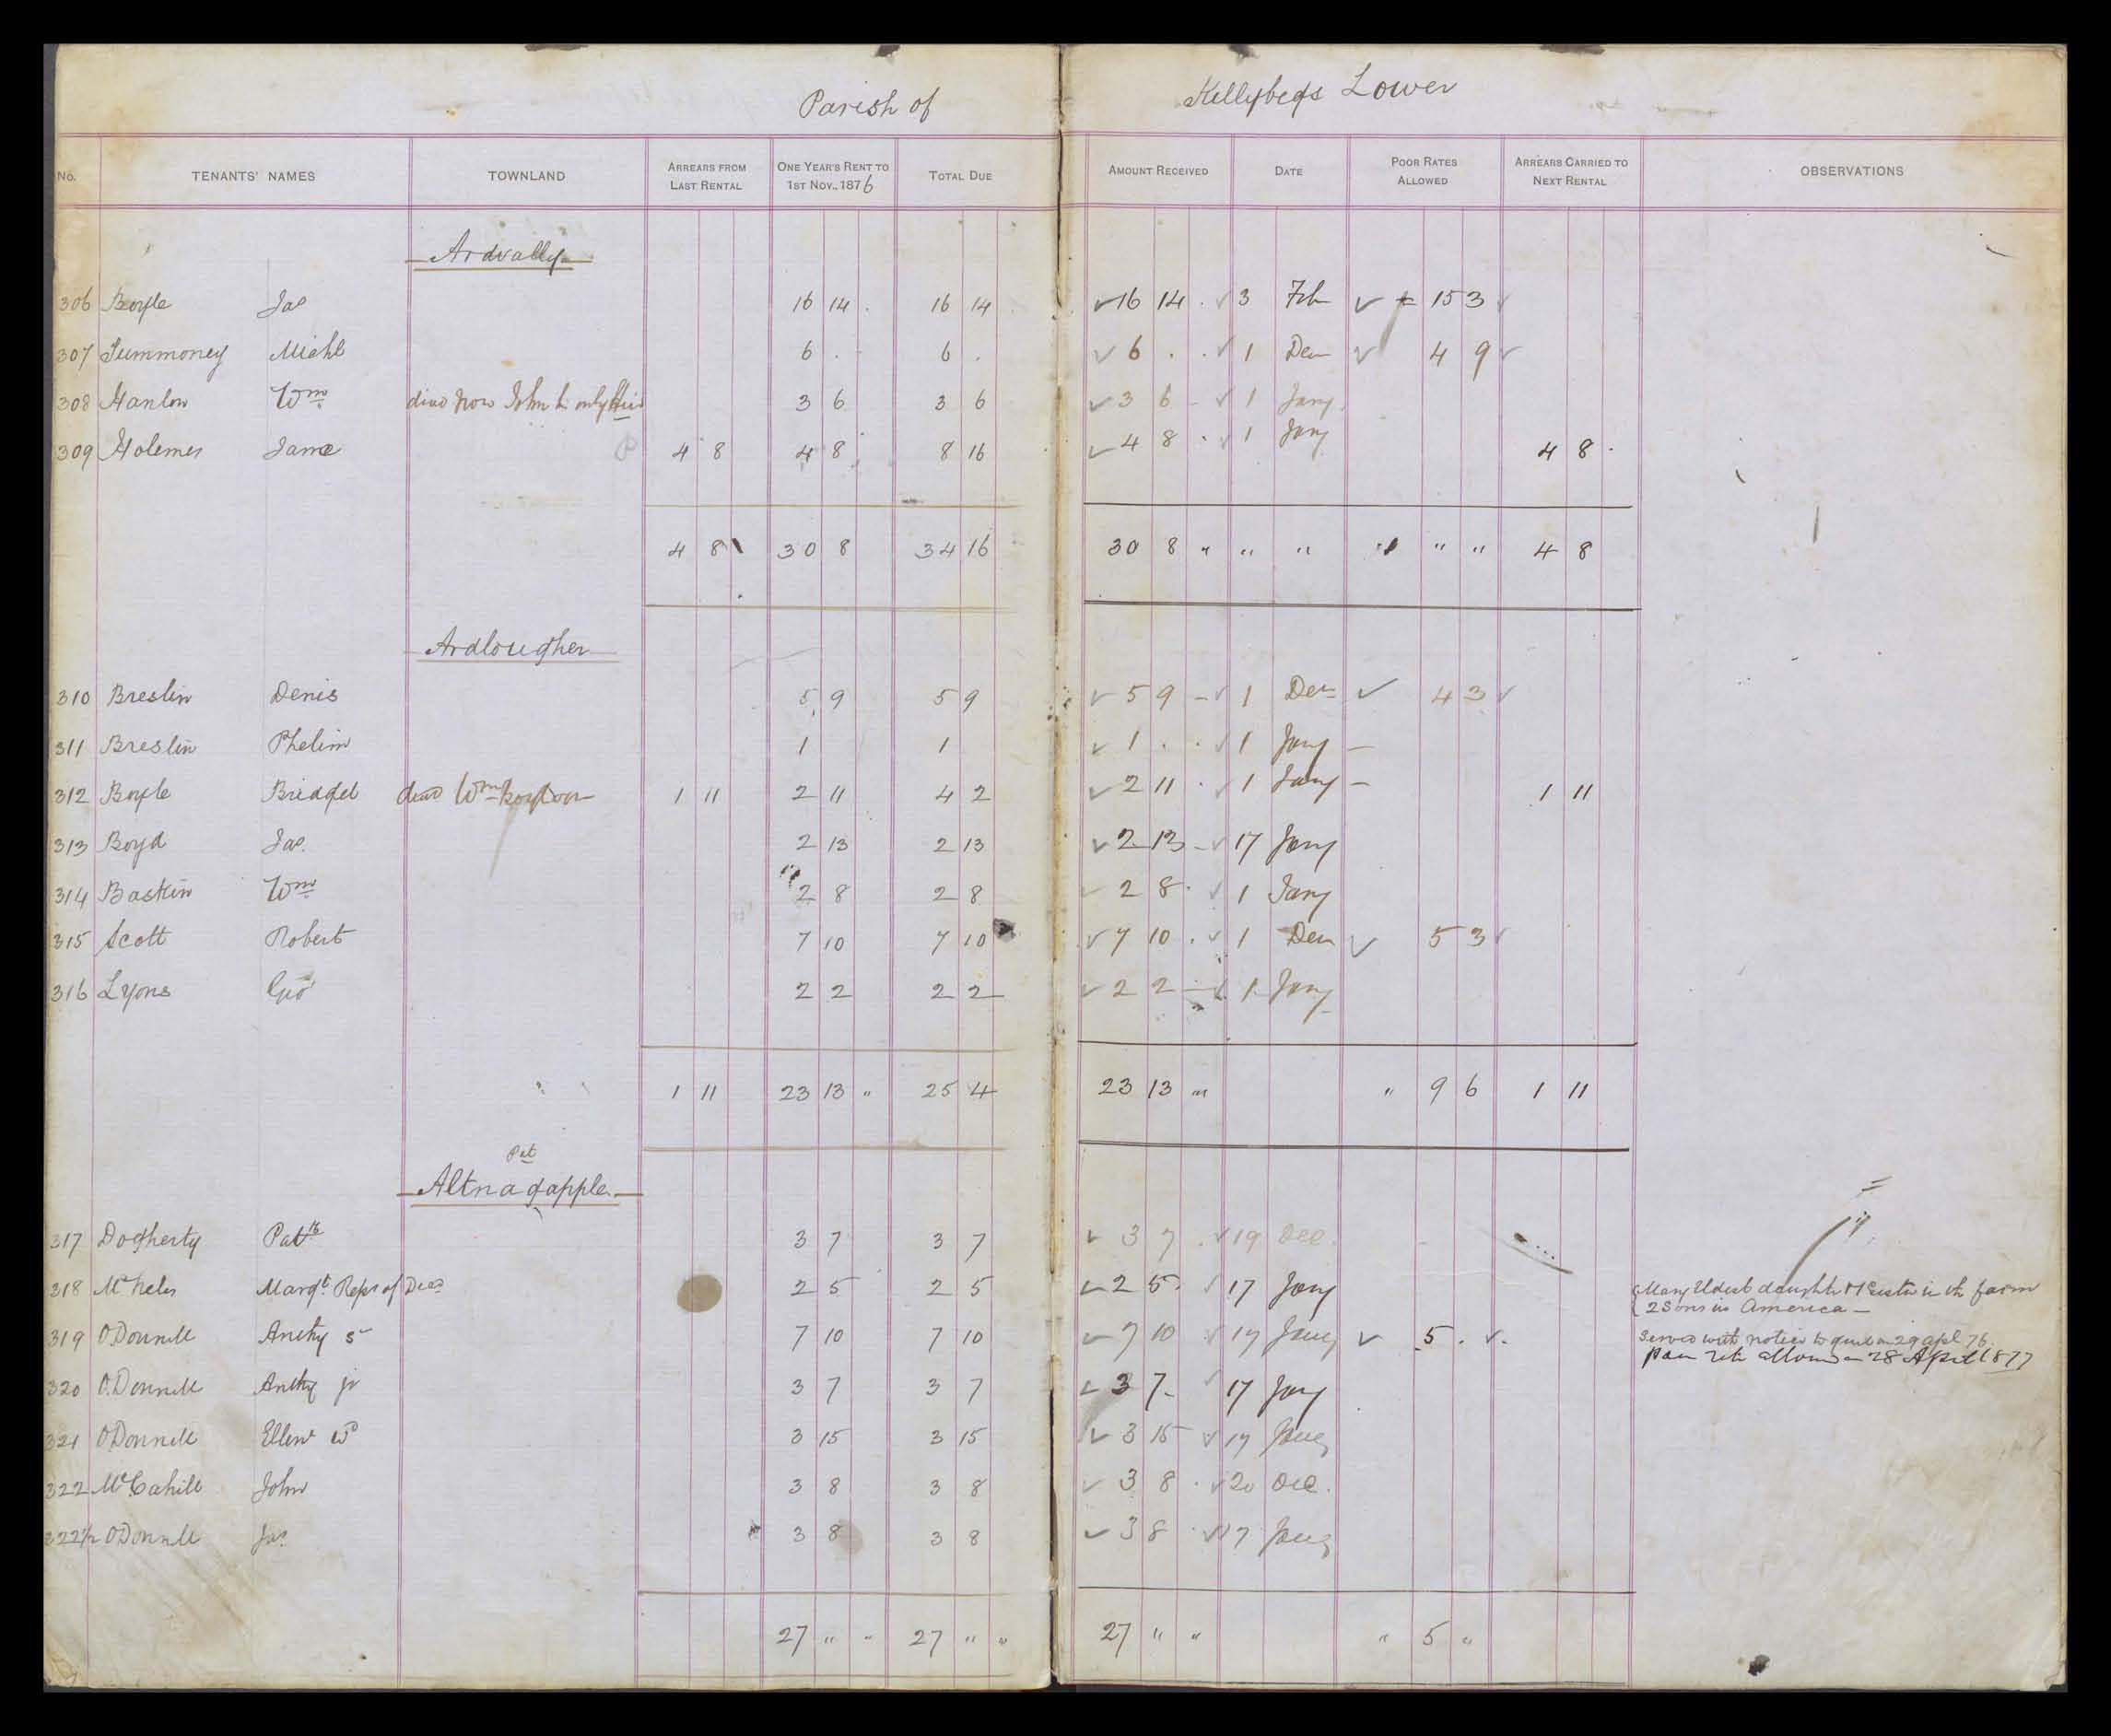 Parish of Killybegs Lower
No. TENANTS' NAMES TOWNLAND ARREARS FROM LAST RENTAL ONE YEAR'S RENT TO 1ST NOV., 1876 TOTAL DUE AMOUNT RECEIVED DATE POOR RATES ALLOWED ARREARS CARRIED TO NEXT RENTAL OBSERVATIONS
Ardvally
306 Boyle Jas 16 14 . 16 14 ✓ 16 14 . ✓ 3 Feb ✓ 15 3 ✓
307 Summoney Michl 6 . - 6 . ✓ 6 . . ✓ 1 Dec ✓ 4 9 ✓
308 Hanlon Wm now John only 3 6 3 6 ✓ 3 6 - ✓ 1 Jany
309 Holemes Jame 4 8 4 8 8 16 ✓ 4 8 . ✓ 1 Jany 4 8 .
4 8 30 8 34 16 30 8 " " " " " " 4 8
Ardlougher
310 Breslin Denis 5 9 5 9 ✓ 5 9 - ✓ 1 Dec ✓ 4 3 ✓
311 Breslin Phelim 1 1 ✓ 1 . . ✓ 1 Jany -
312 Boyle Bridget Wm 1 11 2 11 4 2 ✓ 2 11 . ✓ 1 Jany - 1 11
313 Boyd Jas. 2 13 2 13 ✓ 2 13 - ✓ 17 Jany
314 Baskin Wm 2 8 2 8 ✓ 2 8 . ✓ 1 Jany
315 Scott Robert 7 10 7 10 ✓ 7 10 . ✓ 1 Dec ✓ 5 3 ✓
316 Lyons Geo 2 2 2 2 ✓ 2 2 - ✓ 1 Jany
1 11 23 13 " 25 4 23 13 " " 9 6 1 11
Pet
Altnagapple
317 Dogherty Patk 3 7 3 7 ✓ 3 7 . ✓ 19 Dec.
318 Margt. Reps of Decd 2 5 2 5 ✓ 2 5 . ✓ 17 Jany Mary Eldest daughter & sister in the farm
2 Sons in America -
319 O'Donnell Anthy Sr 7 10 7 10 ✓ 7 10 ✓ 17 Jany ✓ 5 . ✓. Served with notice to quit on 29 apl 76.
Poor rate allowed on 28 April 1877
320 O.Donnell Anthy jr 3 7 3 7 ✓ 3 7 - ✓ 17 Jany
321 O'Donnell Ellen Wd 3 15 3 15 ✓ 3 15 ✓ 17 Jany
322 McCahill John 3 8 3 8 ✓ 3 8 . ✓ 20 Dec.
322½ O'Donnell Jas 3 8 3 8 ✓ 3 8 . ✓ 17 Jany
27 " " 27 " " 27 " " " 5 "